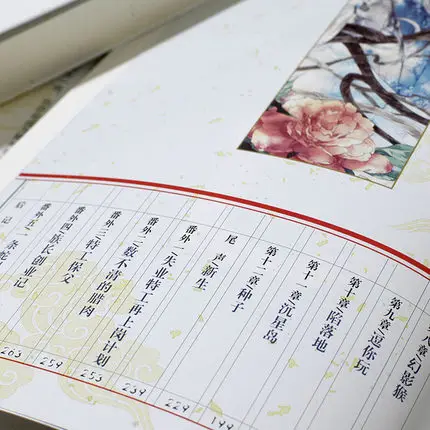 第八章/幻影猴
第九章/逗你玩
第十章/陷落地
第十一章/沉星岛
第十二章/种子
尾声/新生
番外一/失业特工再上岗计划
番外二/数不清的腊肉
番外三/特工保父
番外四/族长创业记
番外五/一条蛇
后记
199
229
239
253
259
263